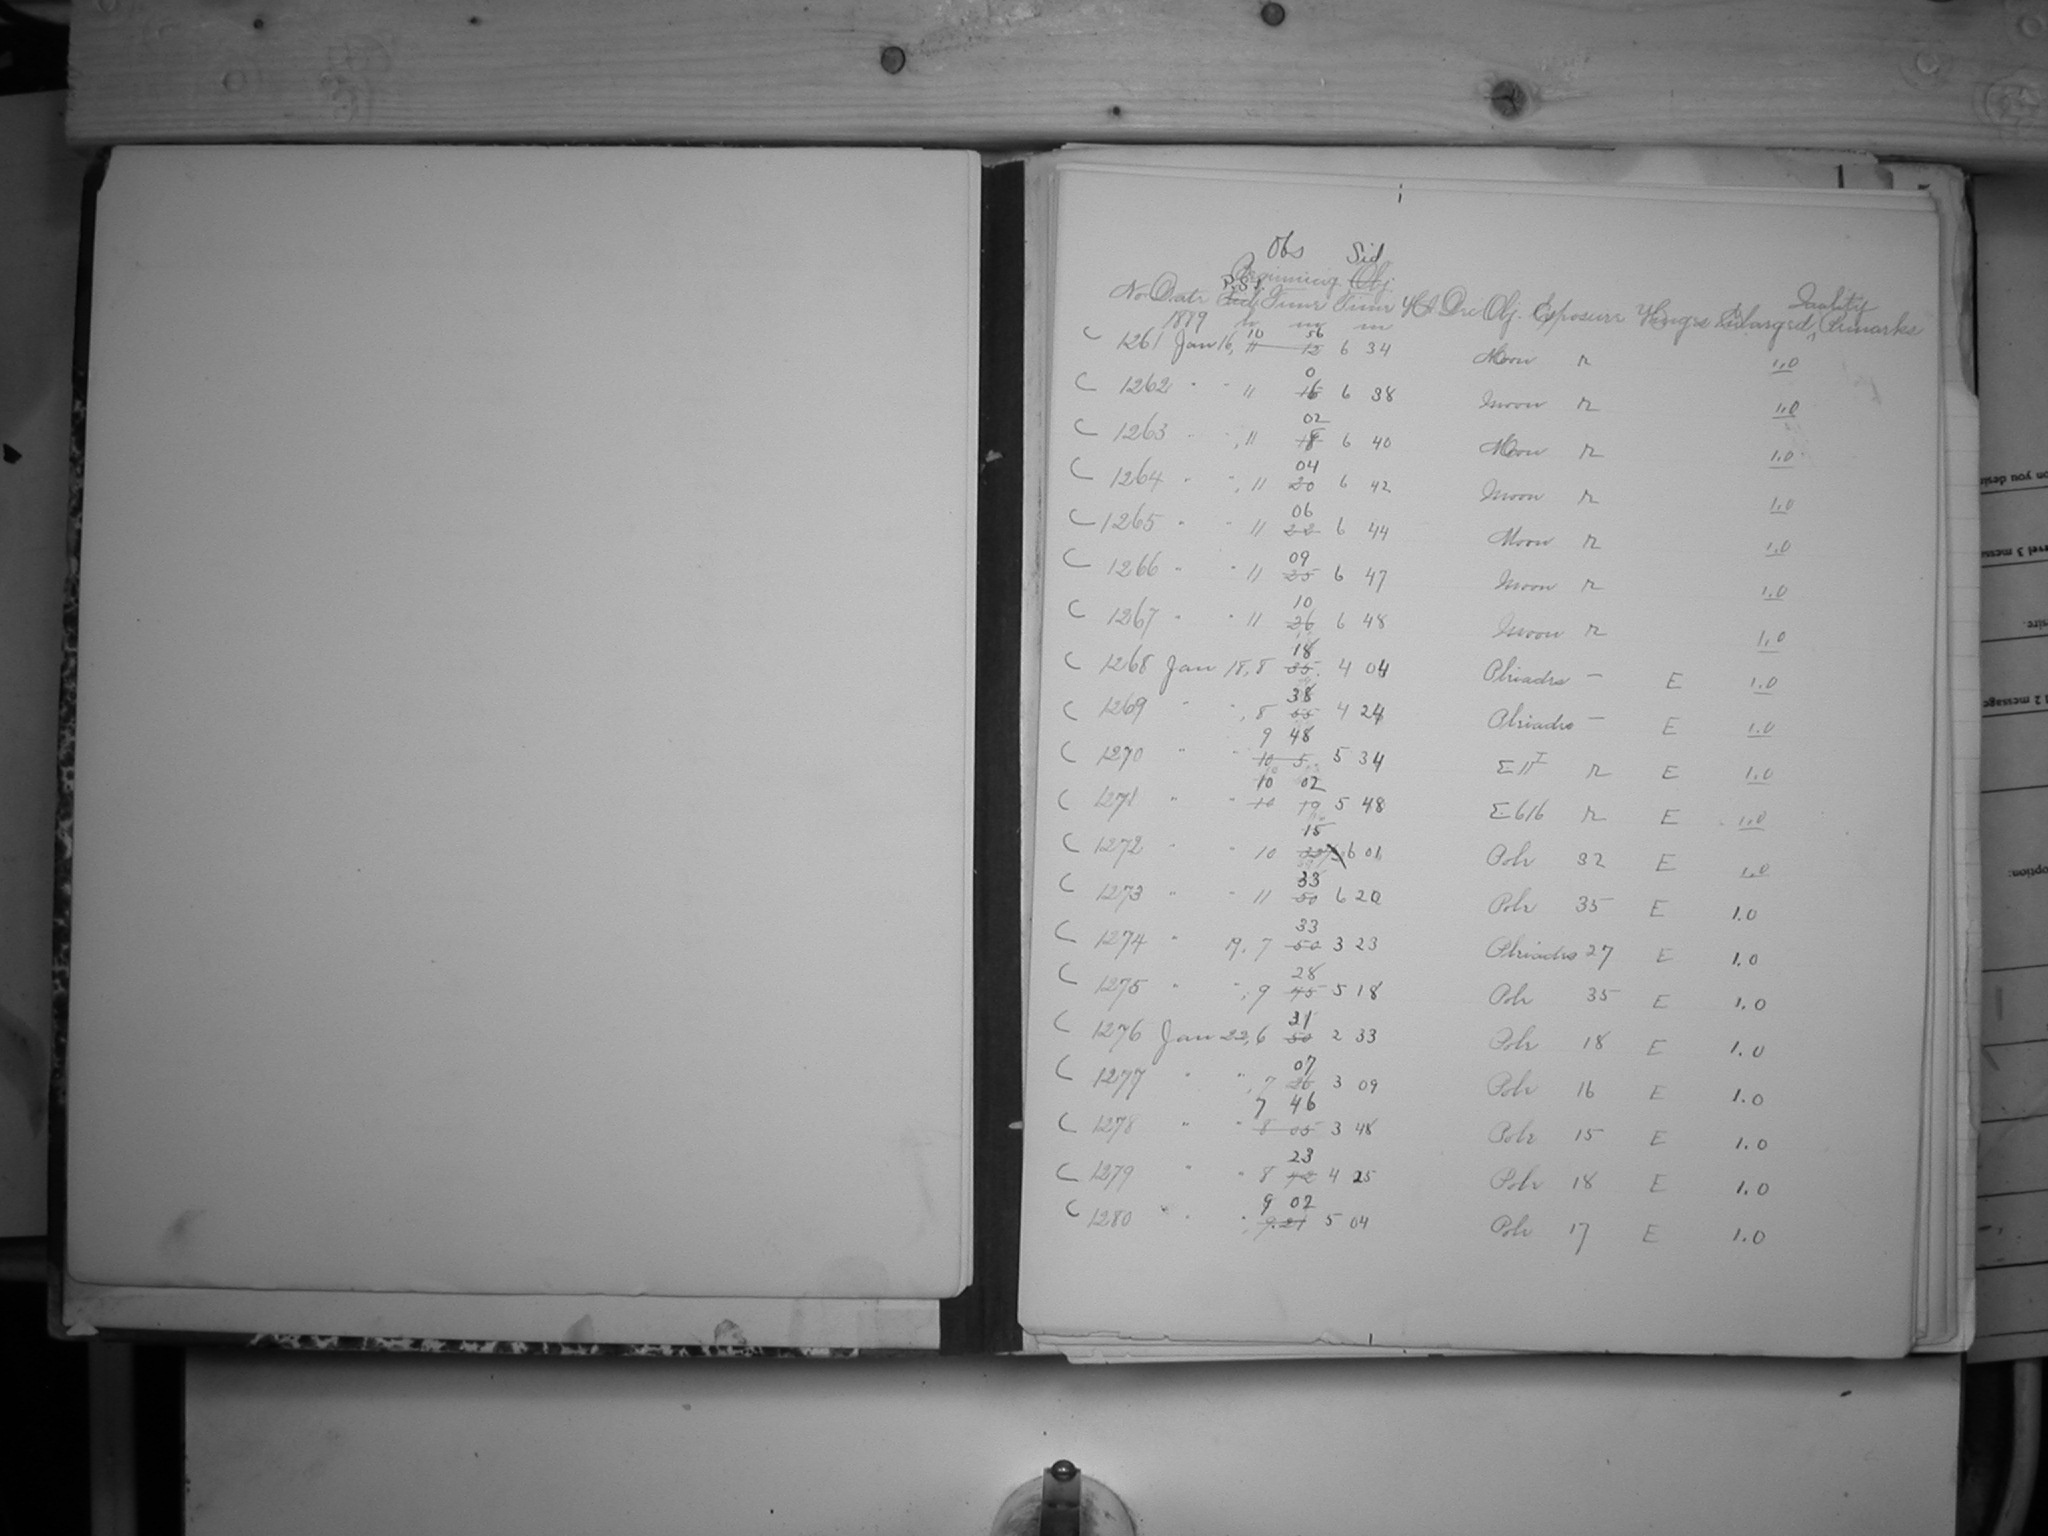 Obs Sid
Beginning Obj
No Date P.S.T. Time Time HA Dec Obj. Exposure Hinges Enlarged, Quality Remarks
1889 h m m
C 1261 Jan 16, 10 56 11 12 6 34 Moon r 1.0
C 1262 " " 11 0 16 6 38 Moon r 1.0
C 1263 " ", 11 02 18 6 40 Moon r 1.0
C 1264 " ", 11 04 20 6 42 Moon r 1.0
C 1265 " " 11 06 22 6 44 Moon r 1.0
C 1266 " " 11 09 25 6 47 Moon r 1.0
C 1267 " " 11 10 26 6 48 Moon r 1.0
C 1268 Jan 18, 8 18 35 4 04 Pleiades — E 1.0
C 1269 " ", 8 38 55 4 24 Pleiades — E 1.0
C 1270 " " 9 48 10 5 5 34 Σ II I r E 1.0
C 1271 " " 10 02 10 19 5 48 Σ 616 r E 1.0
C 1272 " " 10 15 6 01 Pole 32 E 1.0
C 1273 " " 11 33 50 6 20 Pole 35 E 1.0
C 1274 " 19, 7 33 50 3 23 Pleiades 27 E 1.0
C 1275 " ", 9 28 45 5 18 Pole 35 E 1.0
C 1276 Jan 22, 6 31 50 2 33 Pole 18 E 1.0
C 1277 " ", 7 07 26 3 09 Pole 16 E 1.0
C 1278 " " 7 46 8 05 3 48 Pole 15 E 1.0
C 1279 " " 8 23 42 4 25 Pole 18 E 1.0
C 1280 " " 9 02 9.21 5 04 Pole 17 E 1.0
on you desir
vel 3 messa
sire.
l 2 message
option: